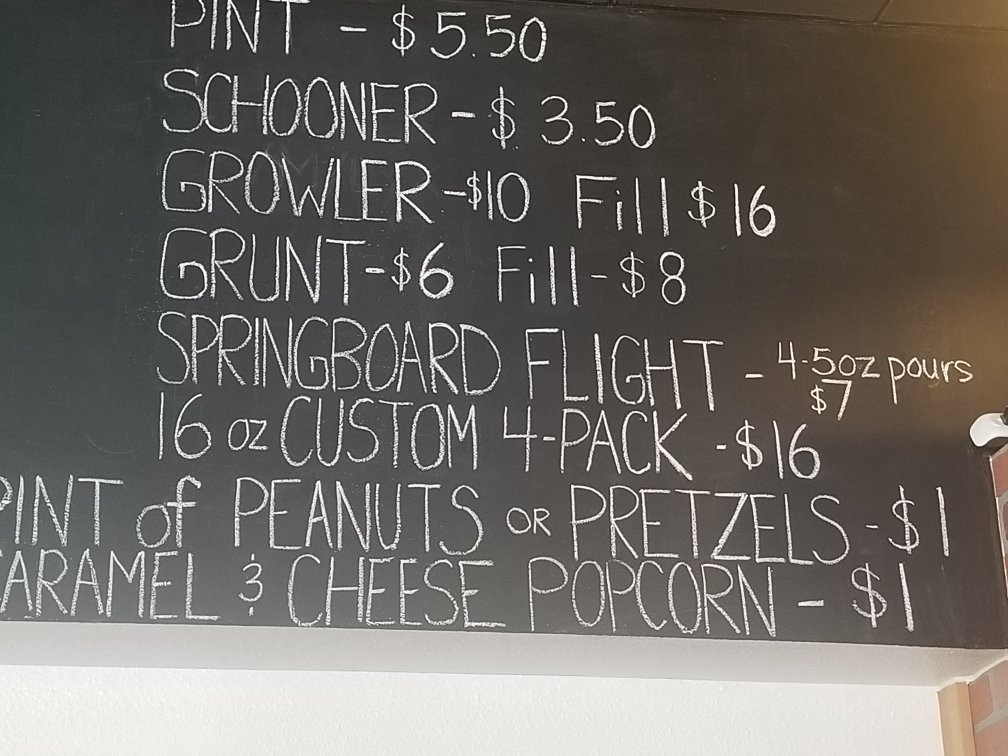 PINT - $5.50
SCHOONER - $ 3.50
GROWLER -$10 Fill $16
GRUNT-$6 Fill-$8
SPRINGBOARD FLIGHT - 4-5oz pours
$7
16 oz CUSTOM 4-PACK -$16
PINT of PEANUTS OR PRETZELS -$1
ARAMEL & CHEESE POPCORN - $1